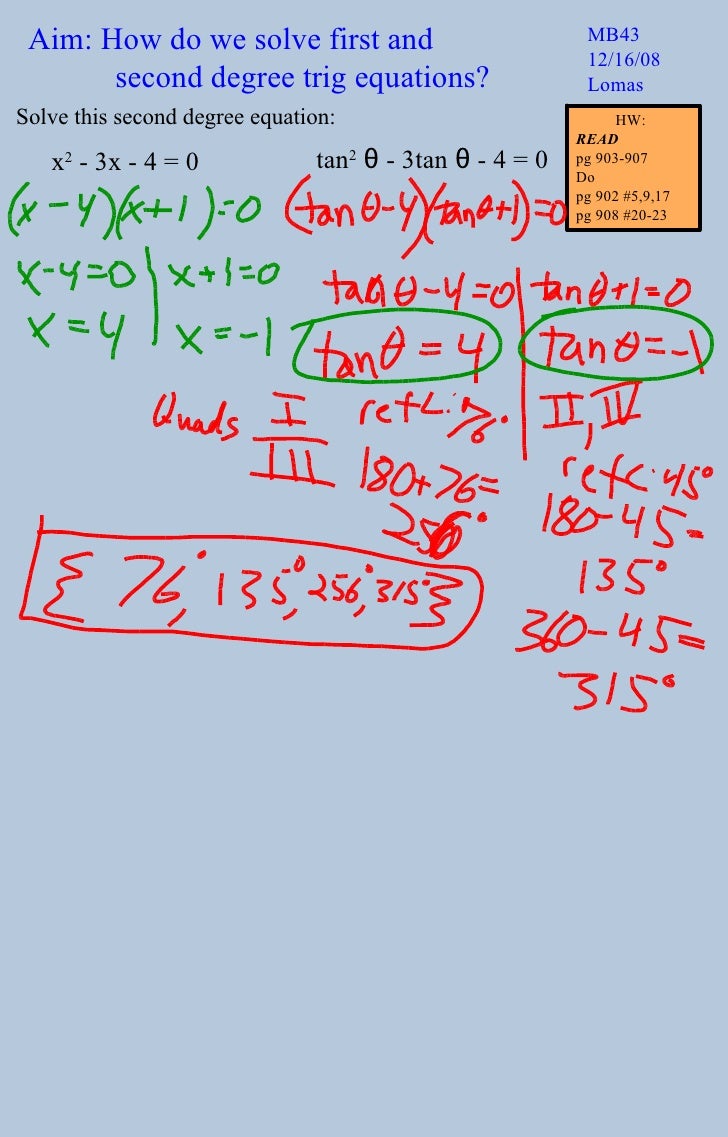 Aim: How do we solve first and
second degree trig equations?
MB43
12/16/08
Lomas
Solve this second degree equation:
HW:
READ
pg 903-907
Do
pg 902 #5,9,17
pg 908 #20-23
x² - 3x - 4 = 0
tan² θ - 3tan θ - 4 = 0
(x-4)(x+1)=0
(tan θ-4)(tan θ+1)=0
x-4=0 | x+1=0
x=4 | x=-1
tan θ-4=0 | tan θ+1=0
tan θ = 4 | tan θ = -1
Quads I
III
ref∠: 76°
180+76=
256°
II, IV
ref∠: 45°
180-45=
135°
360-45=
315°
{76°, 135°, 256°, 315°}